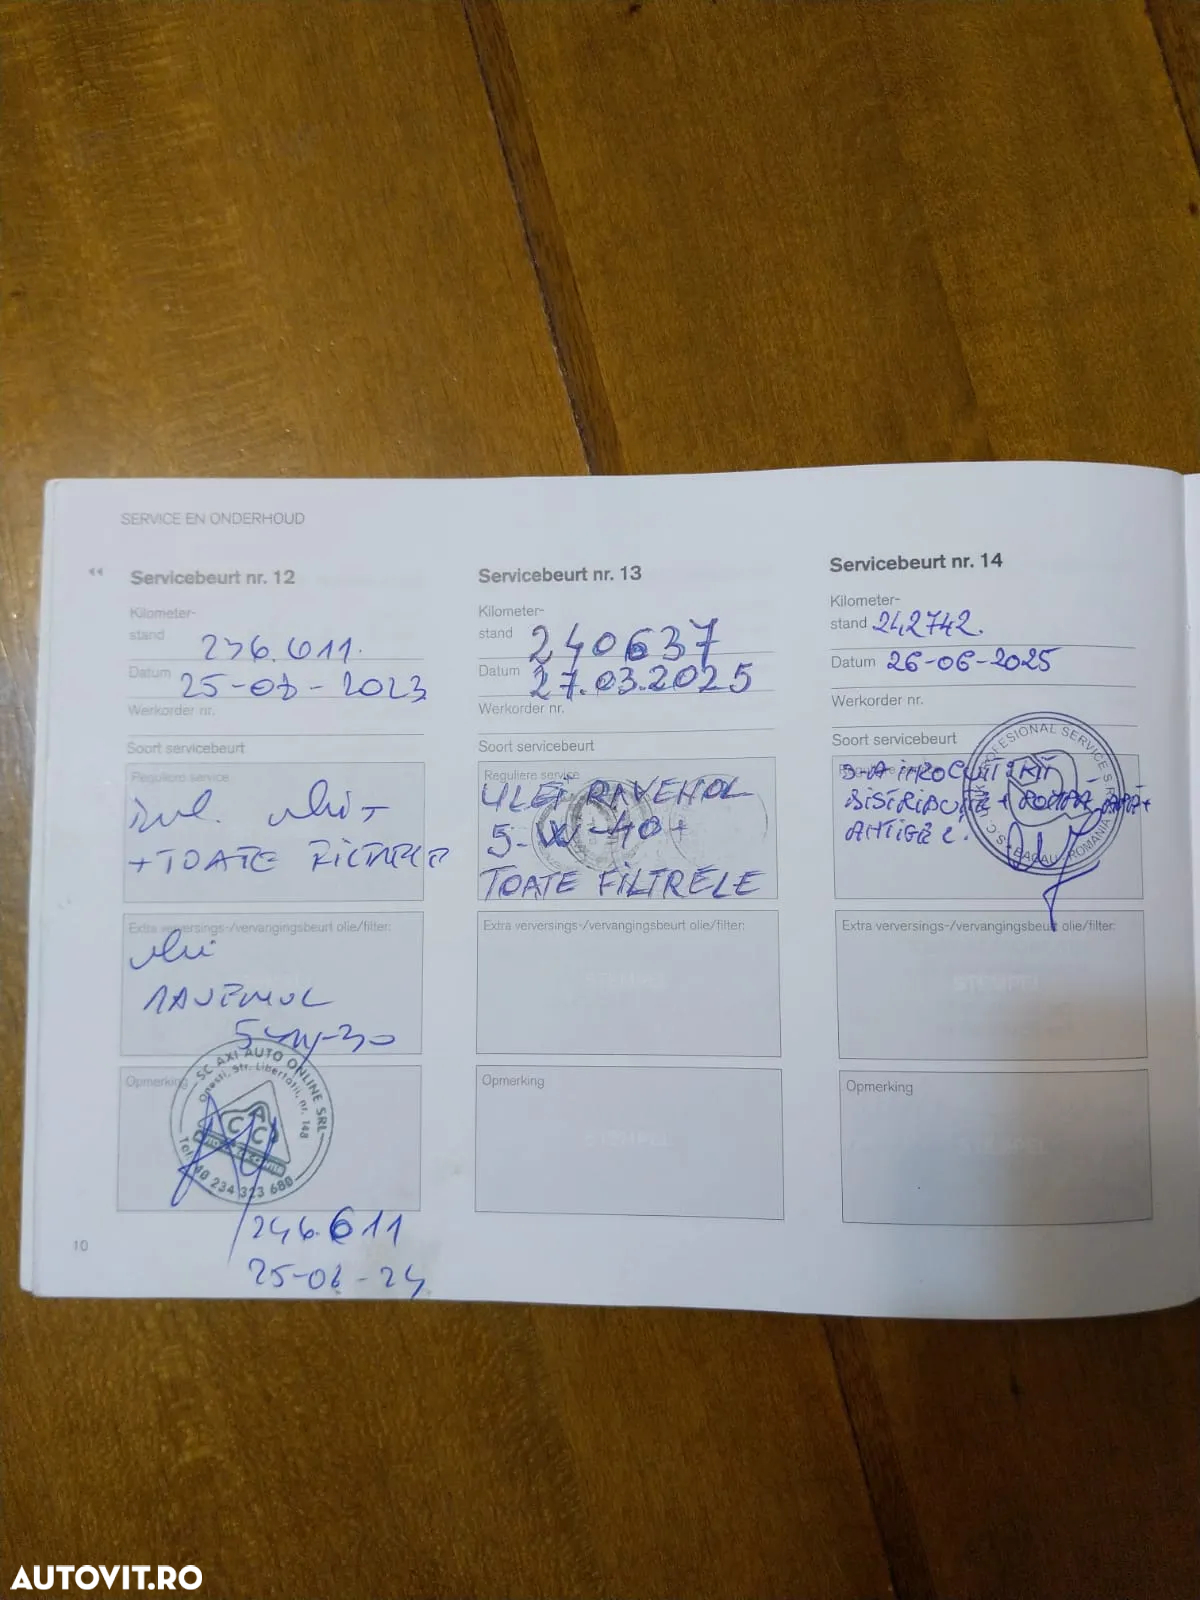 SERVICE EN ONDERHOUD
Servicebeurt nr. 12
Kilometer-
stand 236.611.
Datum 25-06-2023
Werkorder nr.
Soort servicebeurt
Reguliere service
ulei +
+ TOATE FILTRELE
Extra verversings-/vervangingsbeurt olie/filter:
ulei
RAVENOL
5W-30
Opmerking
SC AXI AUTO ONLINE SRL
Onesti, Str. Libertatii, nr. 148
Tel. 40 234 323 680
246.611
25-06-24
10
Servicebeurt nr. 13
Kilometer-
stand 240637
Datum 27.03.2025
Werkorder nr.
Soort servicebeurt
Reguliere service
ULEI RAVENOL
5-W-40+
TOATE FILTRELE
Extra verversings-/vervangingsbeurt olie/filter:
STEMPEL
Opmerking
STEMPEL
Servicebeurt nr. 14
Kilometer-
stand 242742.
Datum 26-06-2025
Werkorder nr.
Soort servicebeurt
Reguliere service
S-A INLOCUIT KIT
DISTRIBUTIE + POMPĂ APĂ+
ANTIGEL.
PROFESIONAL SERVICE S.R.L.
BACAU - ROMANIA
Extra verversings-/vervangingsbeurt olie/filter:
STEMPEL
Opmerking
STEMPEL
AUTOVIT.RO